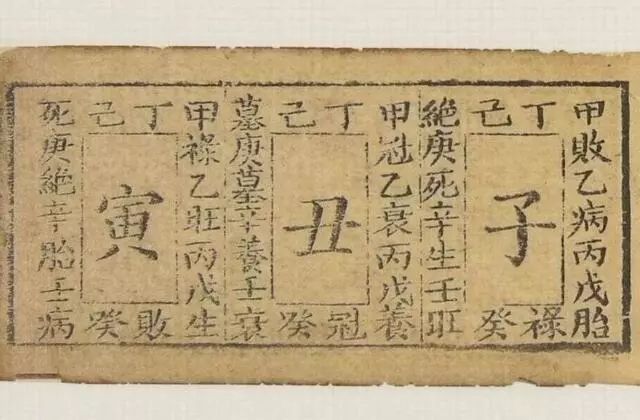 甲敗乙病丙戊胎
丁己
絕庚死辛生壬旺
癸祿
子
甲冠乙衰丙戊養
丁己
墓庚墓辛養壬衰
癸冠
丑
甲祿乙旺丙戊生
丁己
死庚絕辛胎壬病
癸敗
寅